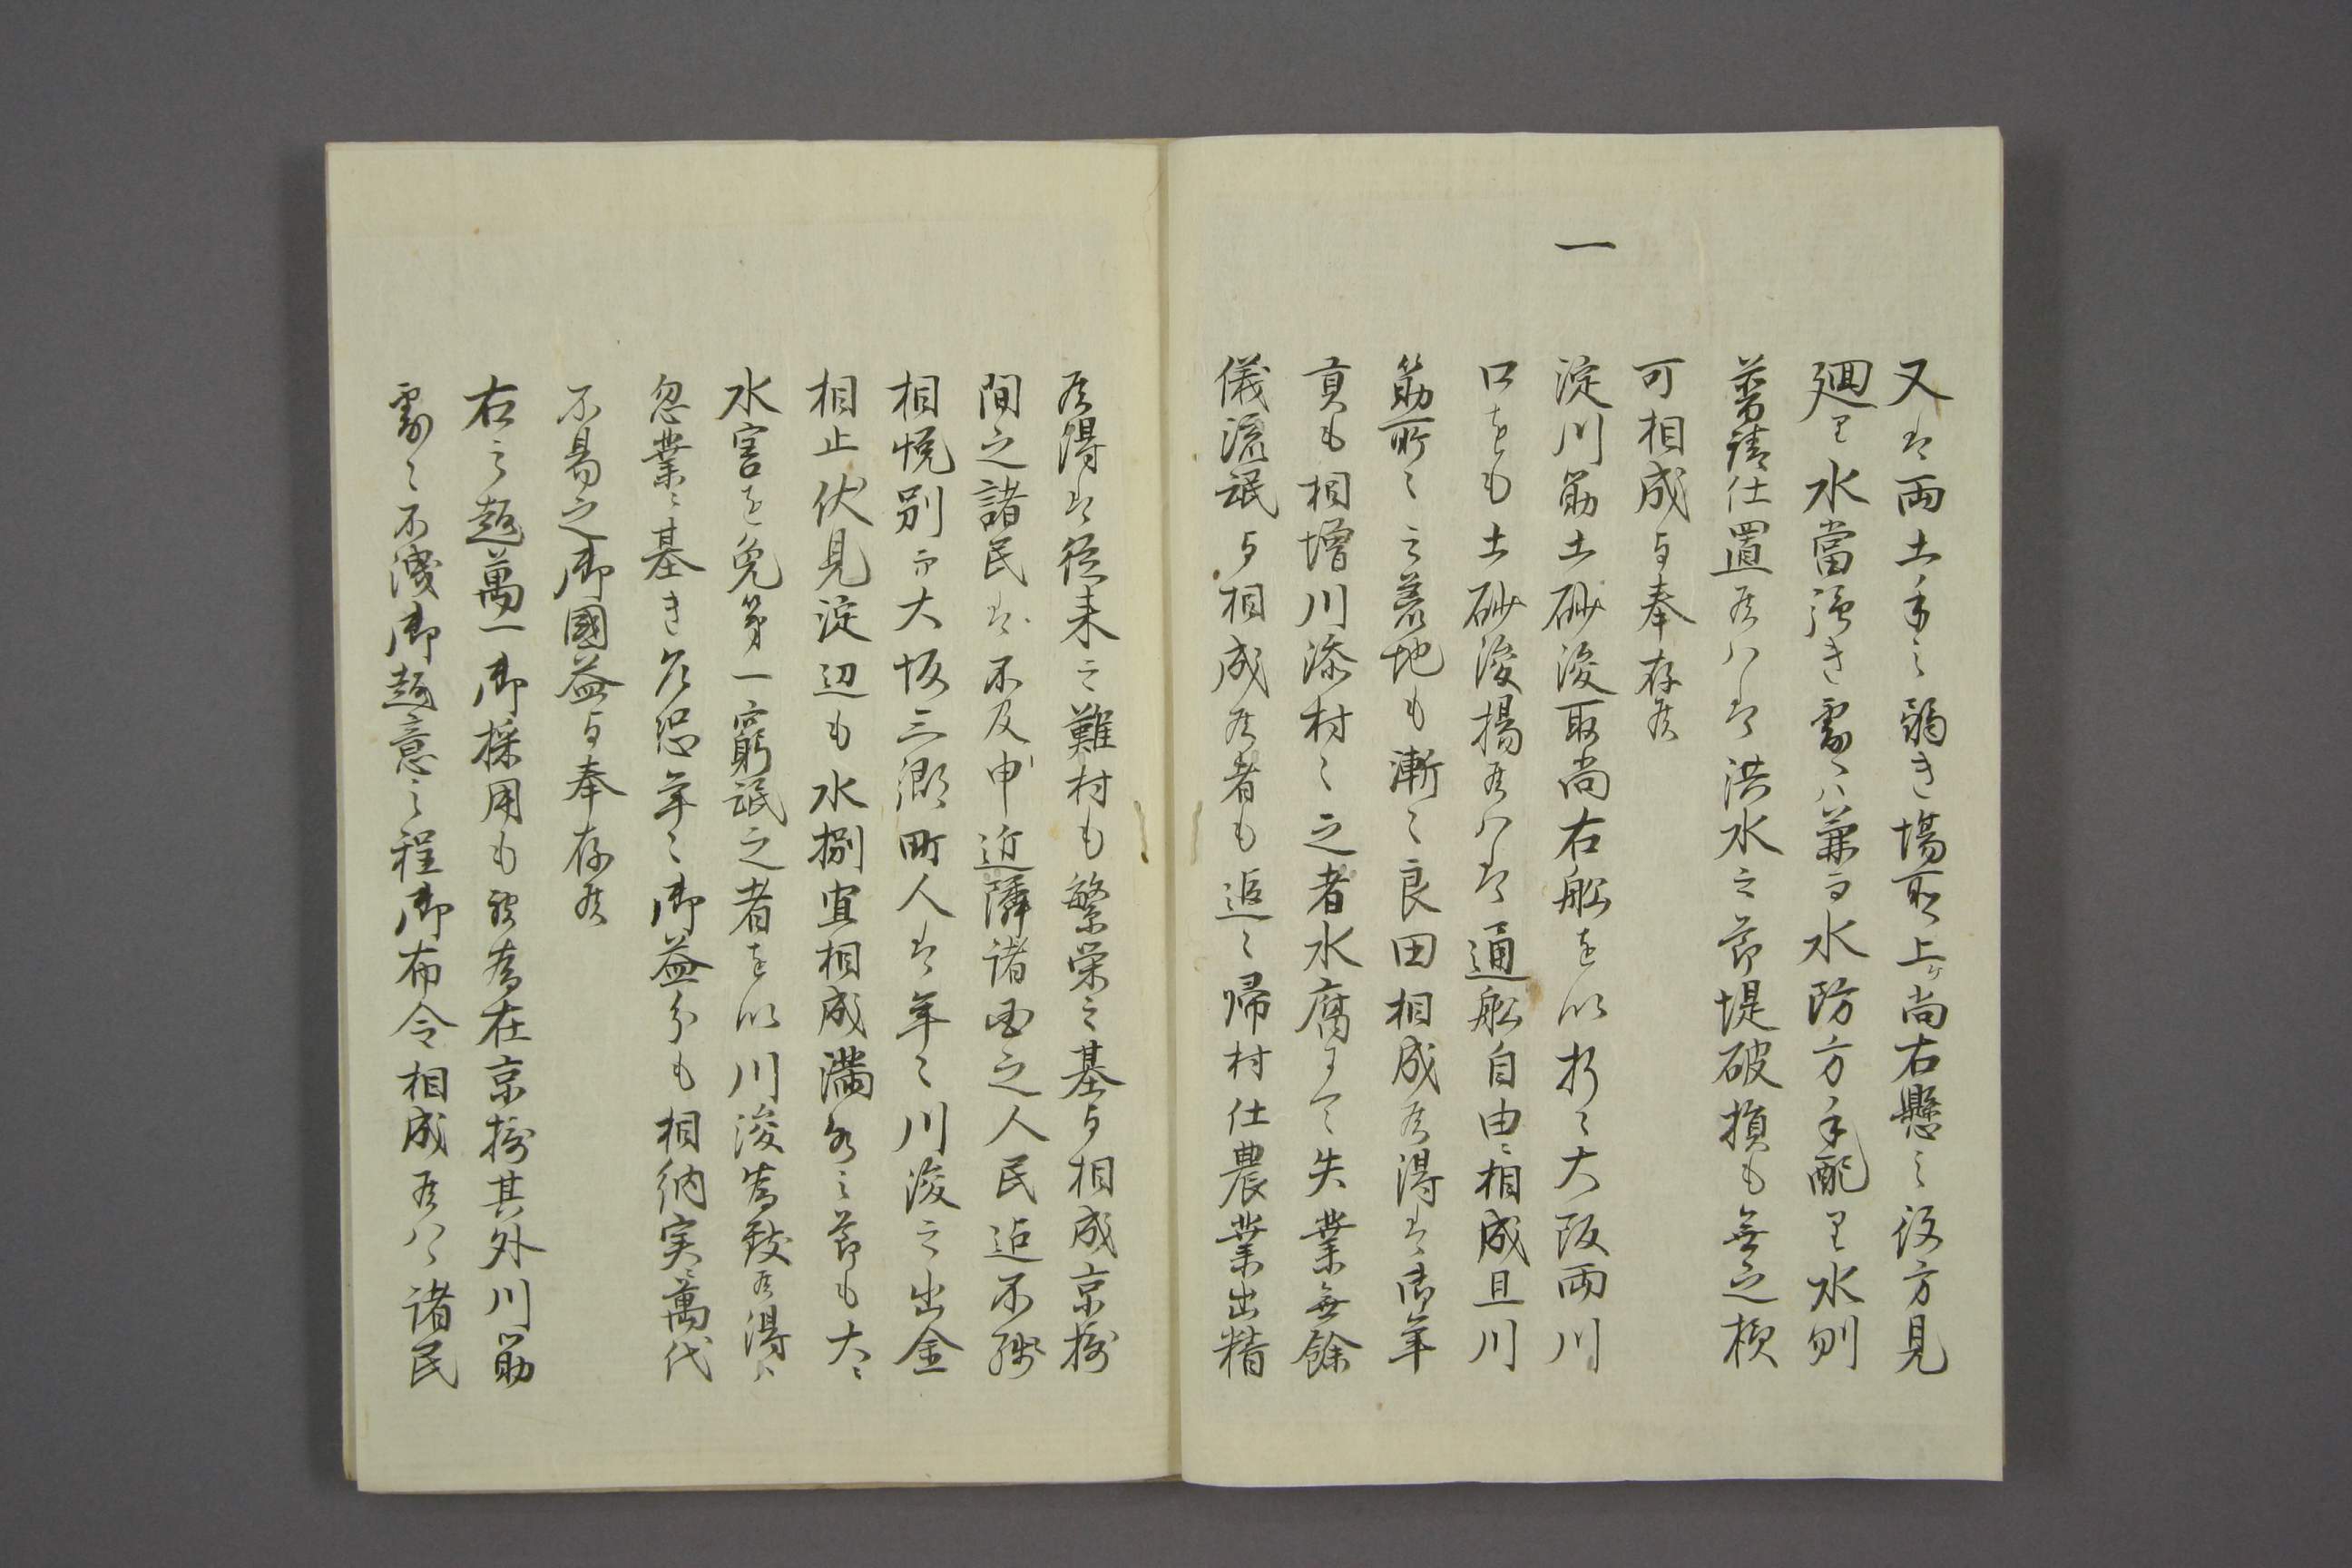 又者両土手之弱き場所上ケ尚右懸之役方見
廻り水當強き處ハ兼而水防方手配り水刎
普請仕置候ハヽ洪水之節堤破損も無之様
可相成与奉存候
一
淀川筋土砂浚取尚右船を以折々大阪両川
口をも土砂浚揚候ハヽ通船自由ニ相成且川
筋所々之荒地も漸々良田相成候得者御年
貢も相増川添村々之者水腐ニ而失業無餘
儀流氓与相成候者も追々帰村仕農業出精
候得者従来之難村も繁栄之基与相成京摂
間之諸民者不及申近隣諸国之人民迄不残
相悦別而大坂三郷町人者年々川浚之出金
相止伏見淀辺も水捌宜相成満水之節も大ニ
水害を免第一窮氓之者を以川浚為致候得ハ
忽業ニ基き乍恐年々御益分も相納実ニ萬代
不易之御國益与奉存候
右之趣萬一御採用も被為在京摂其外川筋
處々不洩御趣意之程御布令相成候ハヽ諸民